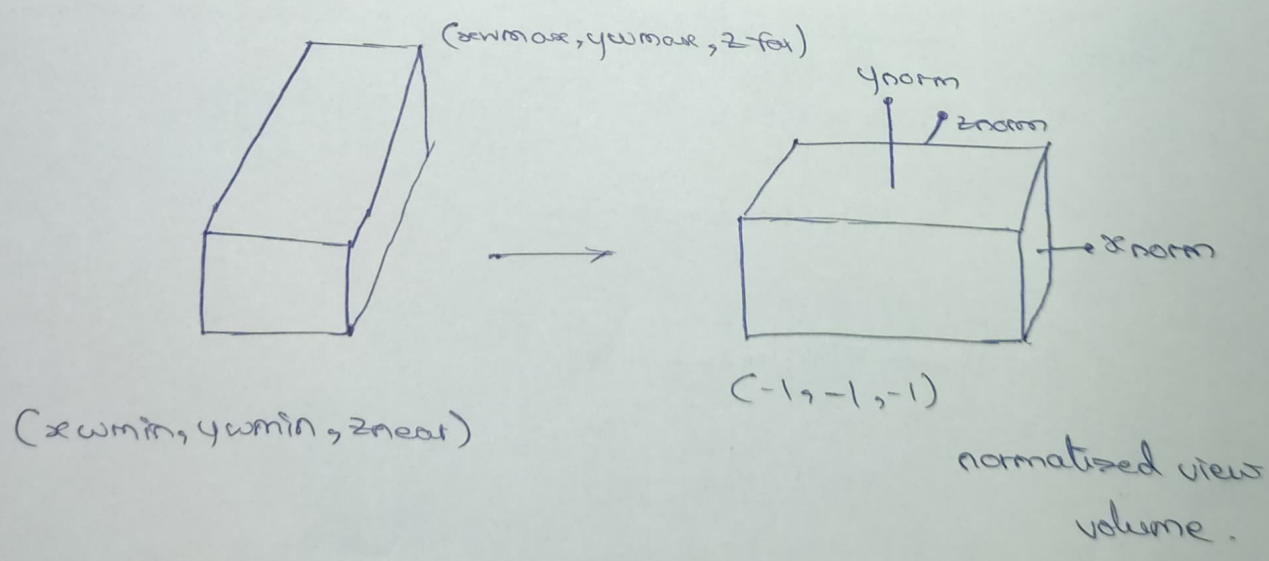 (xwmax, ywmax, zfar)
ynorm
znorm
xnorm
(-1, -1, -1)
(xwmin, ywmin, znear)
normalized view
volume.